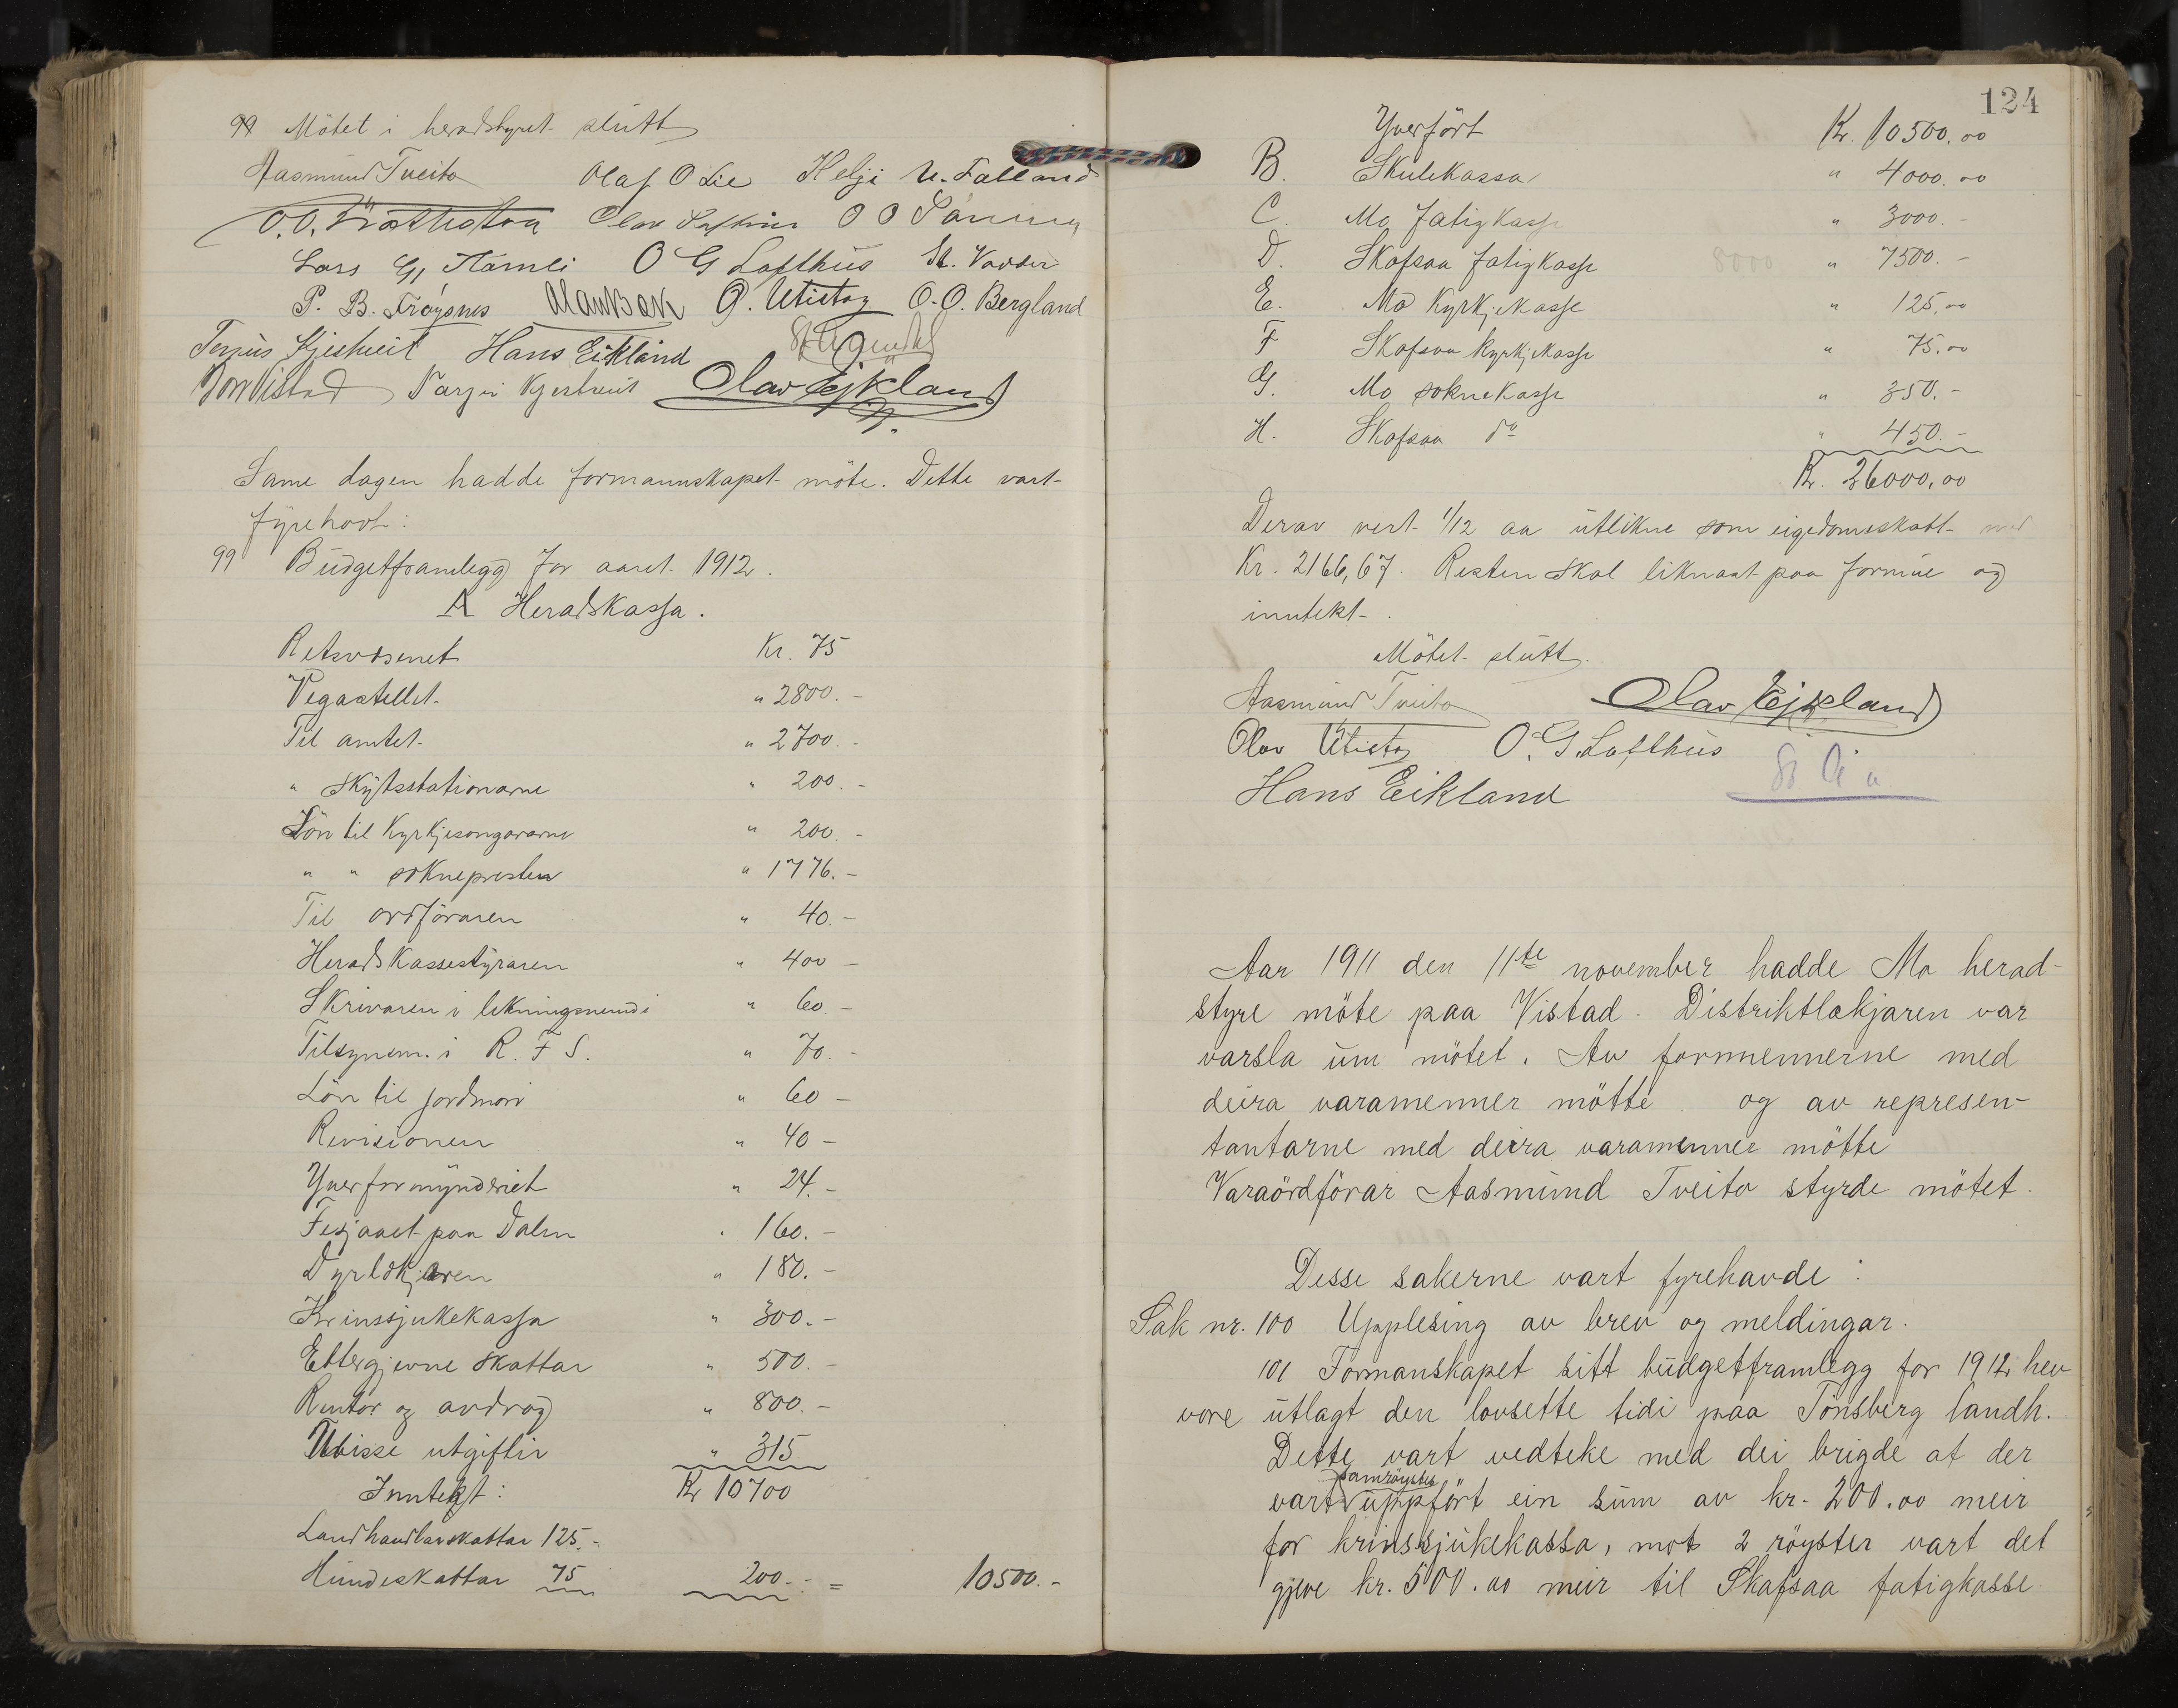 99 Mötet i heradstyret slutt
Aasmund Tveito Olaf O Lie Helje U. Falland
O. O. Olav O O
Lars G. O G Lofthus
P. B. Fröysnes Olav Bek O. Utistog O. O. Bergland
Kjesheit Hans Eikland
Jon Vistad Tarjei Olav Ejkland
Same dagen hadde formannskapet möte. Dette vart
fyrehavt:
99 Budgetframlegg for aaret 1912.
A Heradskassa.
Retsvæsenet Kr. 75
Vegastellet " 2800.-
Til amtet " 2700.-
" Skytsstationarne " 200.-
Lön til Kyrkjesongararne " 200.-
" " soknepresten " 1776.-
Til ordföraren " 40.-
Herads Kassestyraren " 400 -
Skrivaren i likningsnemdi " 60.-
Tilsynsm. i R. F S. " 70.-
Lön til jordmori " 60 -
Revisionen " 40 -
Yverformynderiet " 24.-
Fesjaaet paa Dalen " 160.-
Dyrlækjaren " 180.-
Krinssjukekassa " 300.-
Ettergjevne skattar " 500.-
Rentor og avdrag " 800.-
Uvisse utgiftir " 315
Inntekt: Kr 10700
Landhandlarskattar 125.-
Hundeskattar 75 200.- = 10500.-
124
Yverfört Kr. 10500.00
B. Skulekassa " 4000.00
C. Mo fatigkasse " 3000.-
D. Skafsaa fatigkasse 8000 " 7500.-
E. Mo Kyrkjekasse " 125,00
F Skafsaa kyrkjekasse " 75.00
G. Mo soknekasse " 350.-
H. Skafsaa do " 450.-
Kr. 26000,00
Derav vert 1/12 aa utlikne som eigedomsskatt med
Kr. 2166,67. Resten skal liknast paa formue og
inntekt.
Mötet slutt.
Aasmund Tveito Olav Ejkland
Olav Utistog O. G. Lofthus
Hans Eikland
Aar 1911 den 11te november hadde Mo herad-
styre möte paa Vistad. Distriktlækjaren var
varsla um mötet. Av formennerne med
deira varamenner mötte og av represen-
tantarne med deira varamenner mötte
Varaordförar Aasmund Tveito styrde mötet.
Desse sakerne vart fyrehavde:
Sak nr. 100 Upplesing av brev og meldingar.
101 Formanskapet sitt budgetframlegg for 1912 hev
vore utlagt den lovsette tidi paa Tönsberg landh.
Dette vart vedteke med dei brigde at der
samröystes
vart uppfört ein sum av kr. 200.00 meir
for krinssjukekassa, mots 2 röyster vart det
gjeve kr. 500.00 meir til Skafsaa fatigkasse.